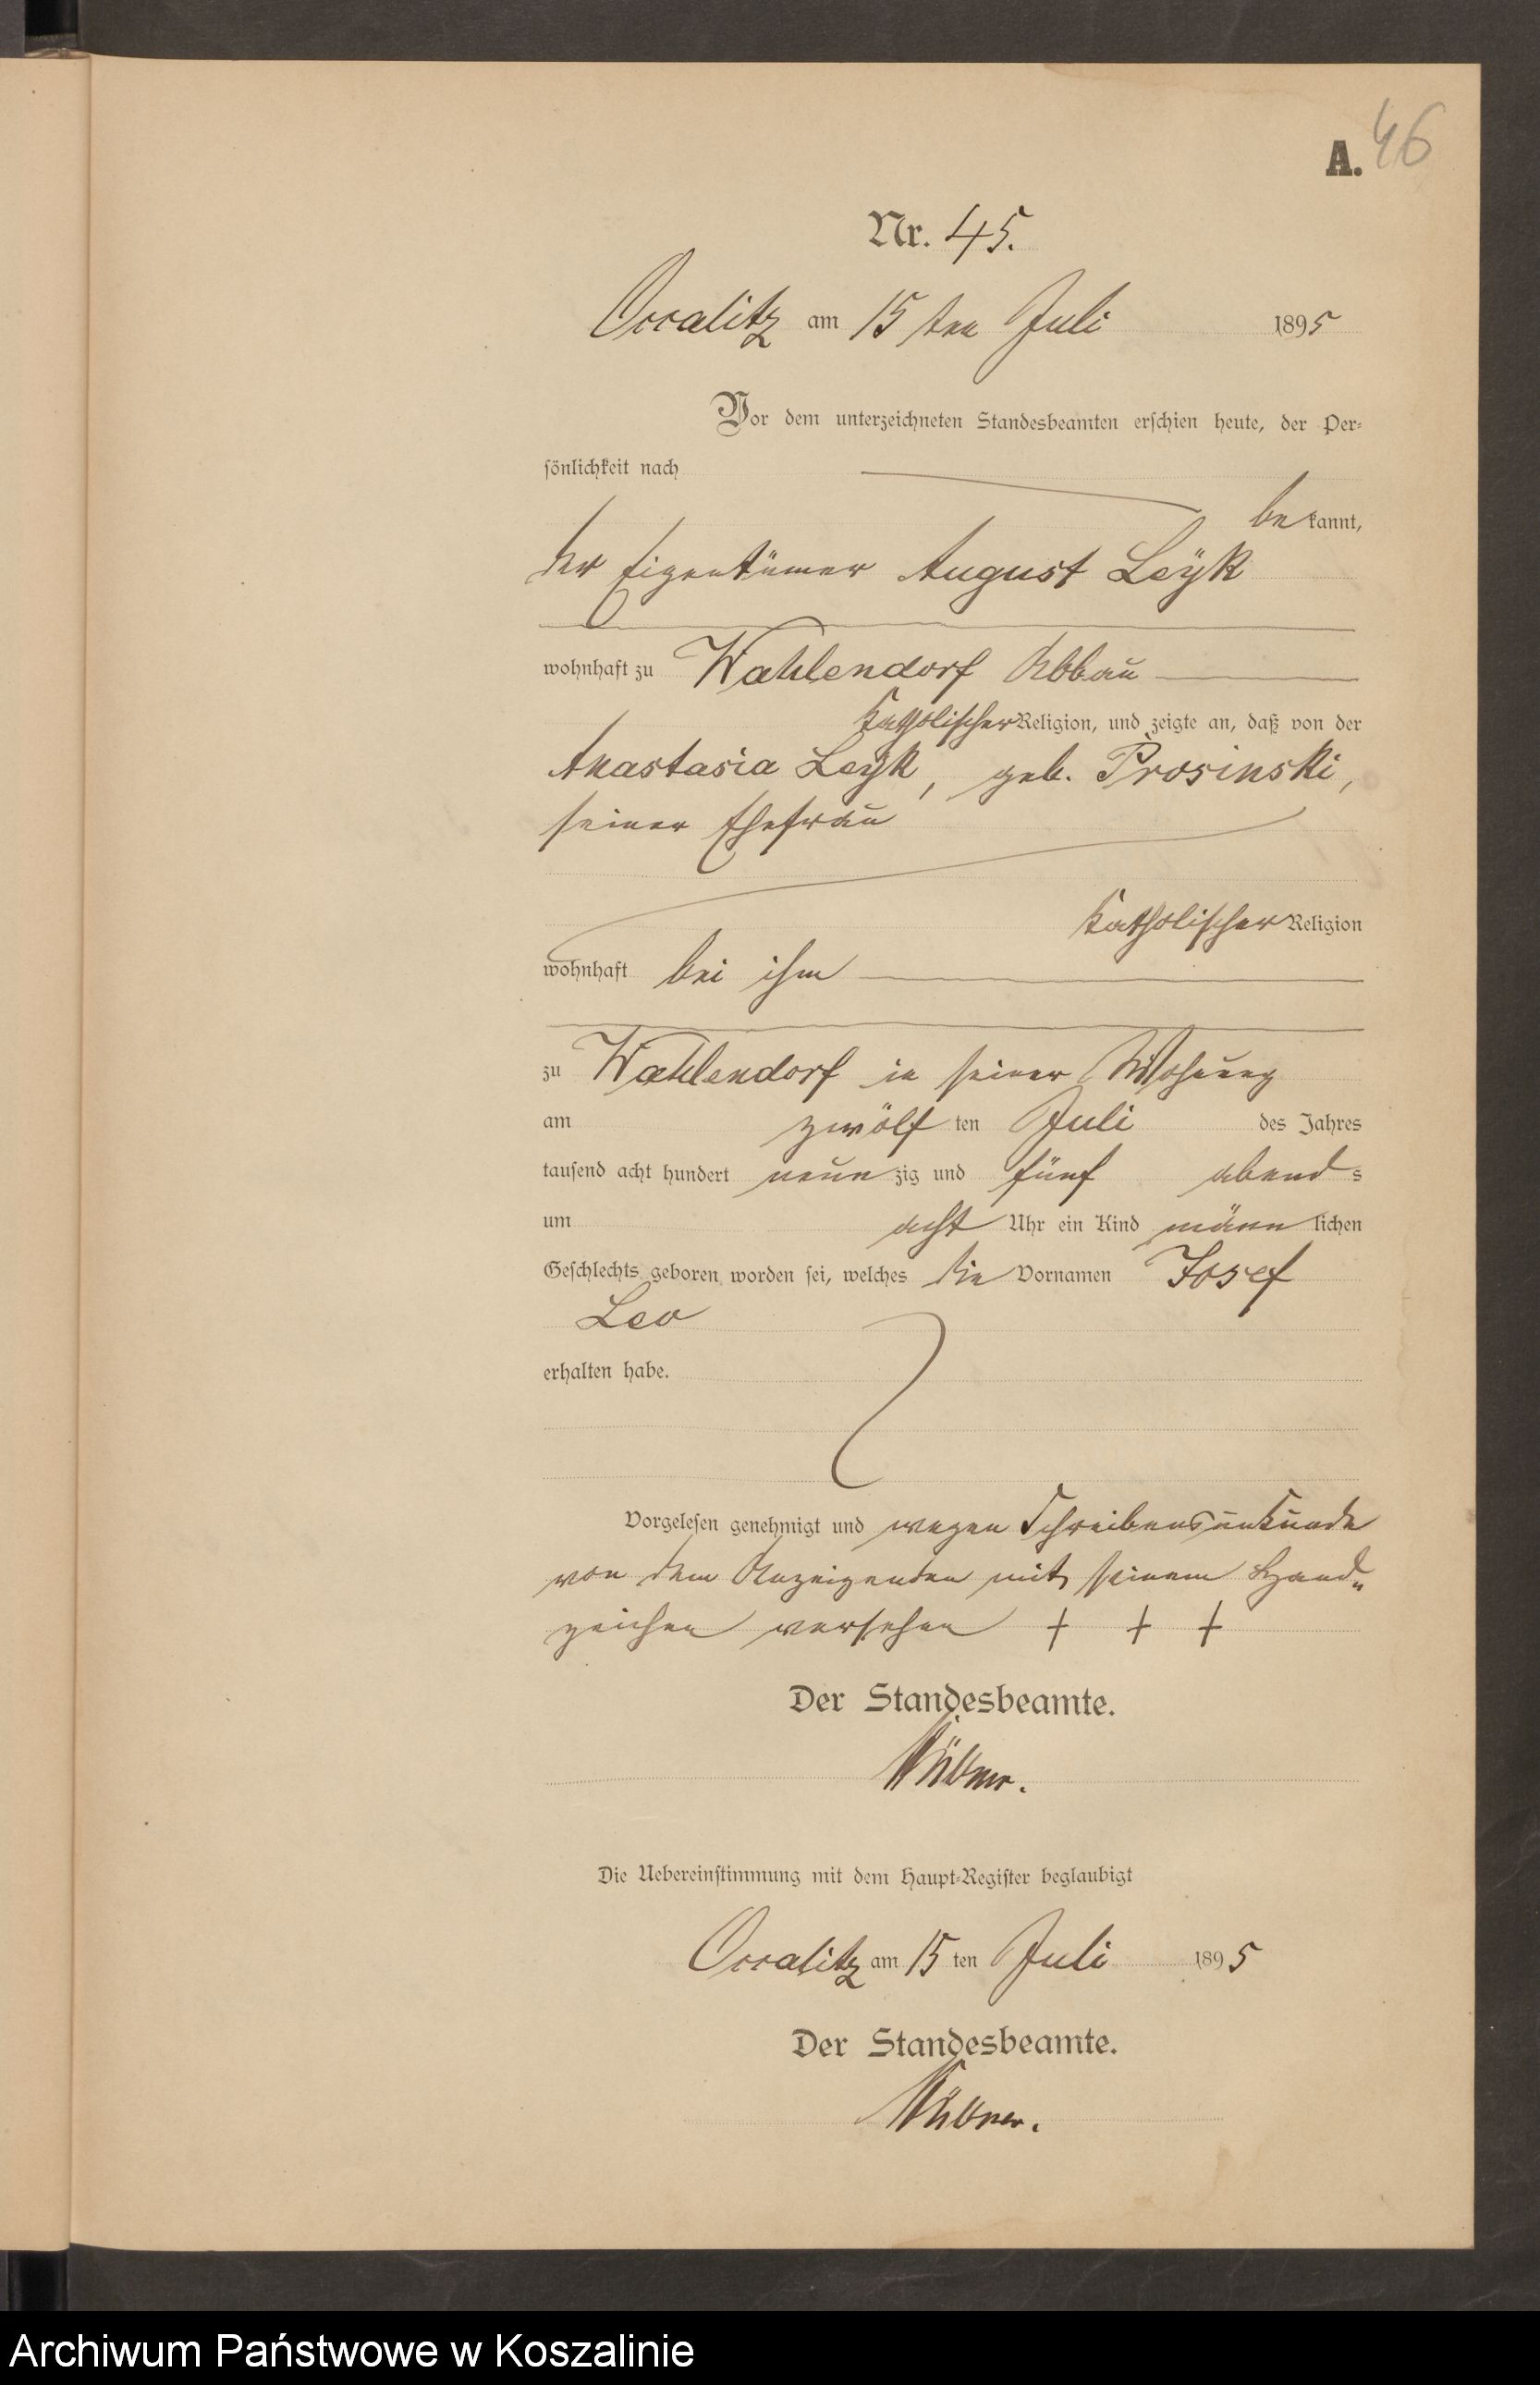 A. 46
Nr. 45.
Occalitz am 15 ten Juli 1895
Vor dem unterzeichneten Standesbeamten erschien heute, der Per-
sönlichkeit nach
be kannt,
der Eigentümer August Leÿk
wohnhaft zu Wahlendorf Abbau
katholischer Religion, und zeigte an, daß von der
Anastasia Leÿk, geb. Prosinski,
seiner Ehefrau
katholischer Religion
wohnhaft bei ihm
zu Wahlendorf in seiner Wohnung
am zwölf ten Juli des Jahres
tausend acht hundert neun zig und fünf abend s
um acht Uhr ein Kind männ lichen
Geschlechts geboren worden sei, welches die Vornamen Josef
Leo
erhalten habe.
Vorgelesen genehmigt und wegen Schreibensunkunde
von dem Anzeigenden mit seinem Hand„
zeichen versehen + + +
Der Standesbeamte.
Die Uebereinstimmung mit dem Haupt-Register beglaubigt
Occalitz am 15 ten Juli 1895
Der Standesbeamte.
Archiwum Państwowe w Koszalinie